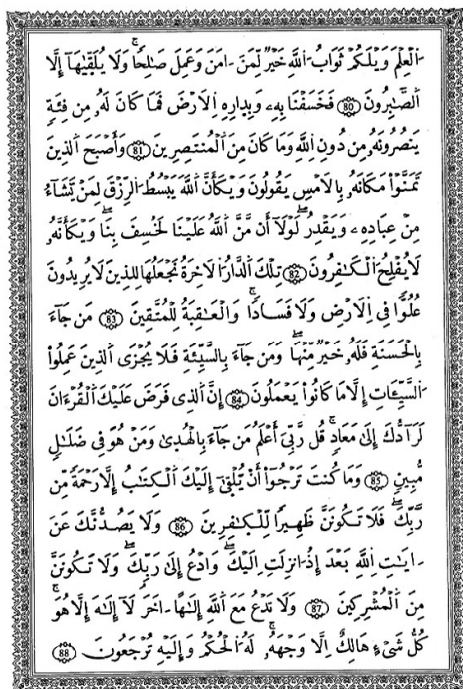 اَ۬لْعِلْمَ وَيْلَكُمْ ثَوَابُ اُ۬للَّهِ خَيْرٞ لِّمَنَ ـ امَنَ وَعَمِلَ صَٰلِحاٗۖ وَلَا يُلَقَّيٰهَآ إِلَّا
اَ۬لصَّٰبِرُونَ 80 فَخَسَفْنَا بِهِۦ وَبِدِارِهِ اِ۬لَارْضَ فَمَا كَانَ لَهُۥ مِن فِئَةٖ
يَنصُرُونَهُۥ مِن دُونِ اِ۬للَّهِ وَمَا كَانَ مِنَ اَ۬لْمُنتَصِرِينَ 81 وَأَصْبَحَ اَ۬لذِينَ
تَمَنَّوْاْ مَكَانَهُۥ بِالَامْسِ يَقُولُونَ وَيْكَأَنَّ اَ۬للَّهَ يَبْسُطُ اُ۬لرِّزْقَ لِمَنْ يَّشَآءُ
مِنْ عِبَادِهِۦ وَيَقْدِرُۖ لَوْلَآ أَن مَّنَّ اَ۬للَّهُ عَلَيْنَا لَخُسِفَ بِنَاۖ وَيْكَأَنَّهُۥ
لَا يُفْلِحُ اُ۬لْكَٰفِرُونَ 82 تِلْكَ اَ۬لدَّارُ اُ۬لَاخِرَةُ نَجْعَلُهَا لِلذِينَ لَا يُرِيدُونَ
عُلُوّاٗ فِے اِ۬لَارْضِ وَلَا فَسَاداٗۖ وَالْعَٰقِبَةُ لِلْمُتَّقِينَ 83 مَن جَآءَ
بِالْحَسَنَةِ فَلَهُۥ خَيْرٞ مِّنْهَاۖ وَمَن جَآءَ بِالسَّيِّئَةِ فَلَا يُجْزَى اَ۬لذِينَ عَمِلُواْ
اُ۬لسَّيِّـَٔاتِ إِلَّا مَا كَانُواْ يَعْمَلُونَ 84 إِنَّ اَ۬لذِے فَرَضَ عَلَيْكَ اَ۬لْقُرْءَانَ
لَرَآدُّكَ إِلَىٰ مَعَادٖۖ قُل رَّبِّيَ أَعْلَمُ مَن جَآءَ بِالْهُد۪ىٰ وَمَنْ هُوَ فِے ضَلَٰلٖ
مُّبِينٖ 85 وَمَا كُنتَ تَرْجُوٓاْ أَنْ يُّلْق۪ىٰٓ إِلَيْكَ اَ۬لْكِتَٰبُ إِلَّا رَحْمَةٗ مِّن
رَّبِّكَۖ فَلَا تَكُونَنَّ ظَهِيراٗ لِّلْكٰ۪فِرِينَ 86 وَلَا يَصُدُّنَّكَ عَنَ
ـ ايَٰتِ اِ۬للَّهِ بَعْدَ إِذُ ا۟نزِلَتِ اِلَيْكَۖ وَادْعُ إِلَىٰ رَبِّكَۖ وَلَا تَكُونَنَّ
مِنَ اَ۬لْمُشْرِكِينَ 87 وَلَا تَدْعُ مَعَ اَ۬للَّهِ إِلَٰهاً ـ اخَرَ لَآ إِلَٰهَ إِلَّا هُوَۖ
كُلُّ شَےْءٍ هَالِكٌ اِلَّا وَجْهَهُۥۖ لَهُ اُ۬لْحُكْمُ وَإِلَيْهِ تُرْجَعُونَ 88